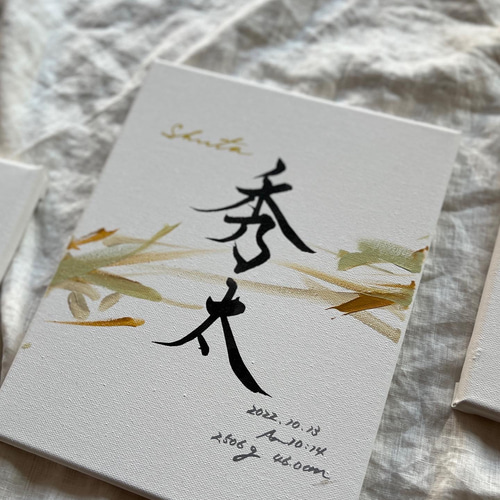 Shuta
秀太
2022.10.13
Am 10:14
2506g 46.0cm